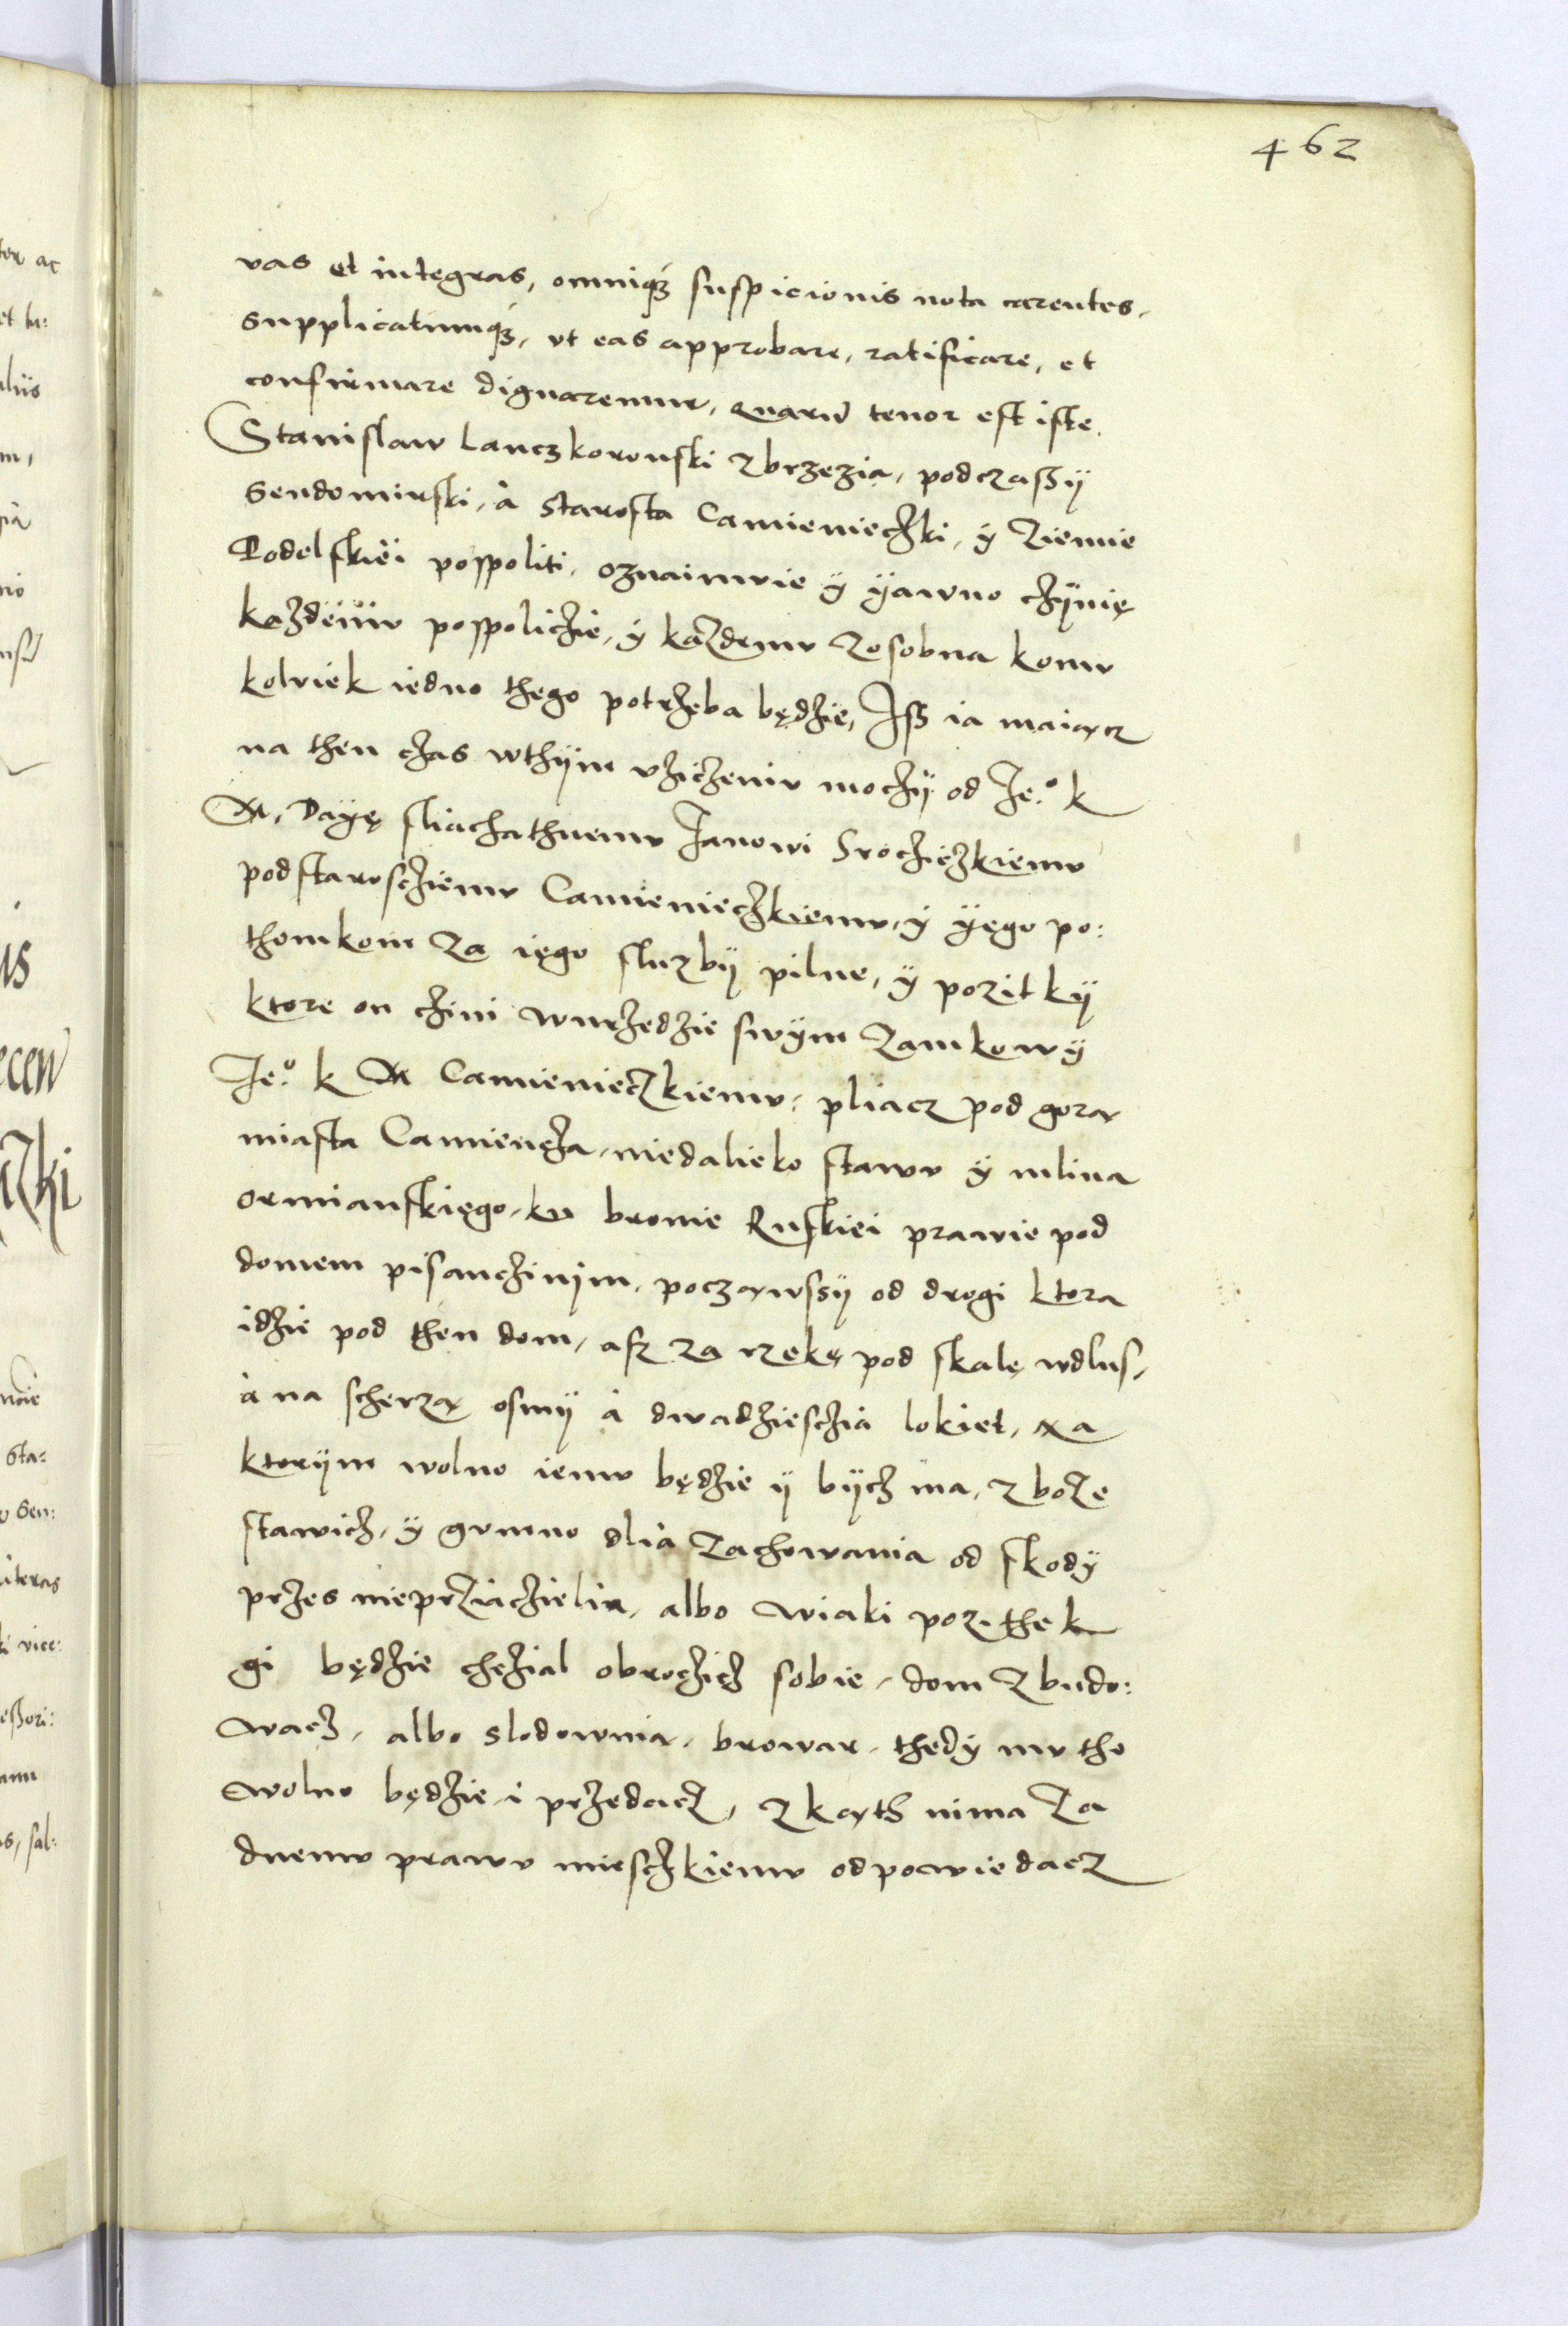 462
vas et integras, omniq3 suspicionis nota carentes,
supplicatumq3, vt eas approbare, ratificare, et
confirmare dignaremur, quarũ tenor est iste.
Stanislaw Lanczkoronski zbrzezia, podczaßÿ
Sendomirski, à starosta Camienieczki, ÿ ziemie
Podolskiëi pospoliti, oznaimuie ÿ ÿawno czÿnię
każdemv pospoliczie, ÿ kazdemv zosobna komv
kolviek iedno thego potrzeba będzie, Iß ia maiącz
na then czas wthÿm vziczeniv moczÿ od Je.º k
M, Dayę sliachathnemv Janowi Srocziczkiemv
podstaroscziemv Camienieczkiemv, ÿ ÿęgo po:
thomkom za ięgo sluzbÿ pilne, ÿ pozitkÿ
ktore on czini wurzedzie swÿm zamkowÿ
Je.º k M Camienieczkiemv, pliacz pod gorą
miasta Camiencza, niedalieko stawv ÿ mlina
ormianskięgo, ku bronie Ruskiei prawie pod
domem pisanczinim, począwssÿ od drogi ktora
idzie pod then dom, asz za rzekę pod skalę wdlus,
à na scherzą osmÿ à dwadziesczia lokiet, na
ktorÿm wolno iemv będzie ÿ bÿcz ma, zboże
stawicz, ÿ gumno dlia zachowania od skodÿ
przes nieprziacziela, albo wiaki pozithek
gi będzie chcział obroczicz sobie, dom zbudo:
wacz, albo slodownią, browar, thedÿ mv tho
wolno będzie i przedacz, zkąth nima za
dnemv prawv miesczkiemv odpowiedacz